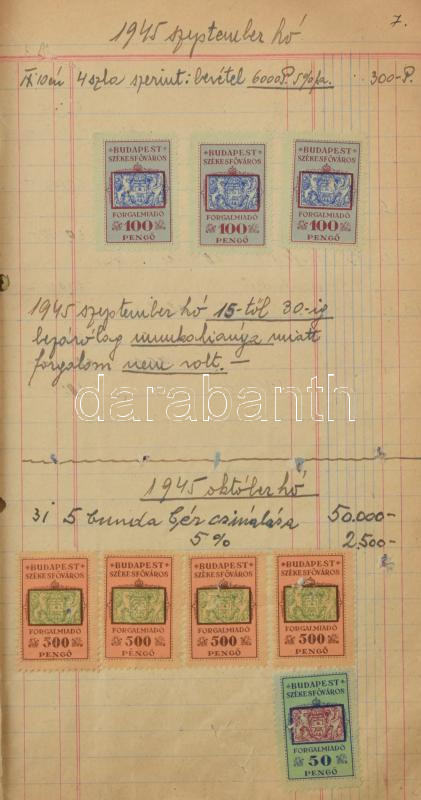 7.
1945 szeptember hó
IX 10 én 4 szla szerint: bevétel 6000 P. 5%a. 300-P.
BUDAPEST SZÉKESFŐVÁROS FORGALMIADÓ 100 PENGŐ
BUDAPEST SZÉKESFŐVÁROS FORGALMIADÓ 100 PENGŐ
BUDAPEST SZÉKESFŐVÁROS FORGALMIADÓ 100 PENGŐ
1945 szeptember hó 15-től 30-ig
bezárólag munkahiánya miatt
forgalom nem volt. —
darabanth
1945 október hó
31 5 bunda bér csinálása 50.000-
5% 2.500-
BUDAPEST SZÉKESFŐVÁROS FORGALMIADÓ 500 PENGŐ
BUDAPEST SZÉKESFŐVÁROS FORGALMIADÓ 500 PENGŐ
BUDAPEST SZÉKESFŐVÁROS FORGALMIADÓ 500 PENGŐ
BUDAPEST SZÉKESFŐVÁROS FORGALMIADÓ 500 PENGŐ
BUDAPEST SZÉKESFŐVÁROS FORGALMIADÓ 50 PENGŐ